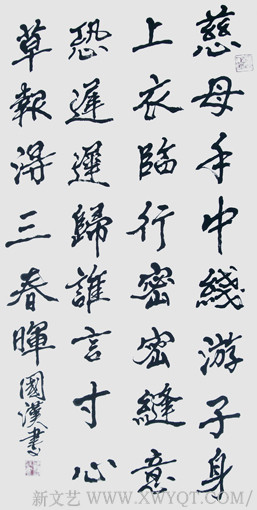 慈母手中綫游子身
上衣臨行密密縫意
恐遲遲歸誰言寸心
草報得三春暉
國漢書
新文艺 WWW.XWYQT.COM/